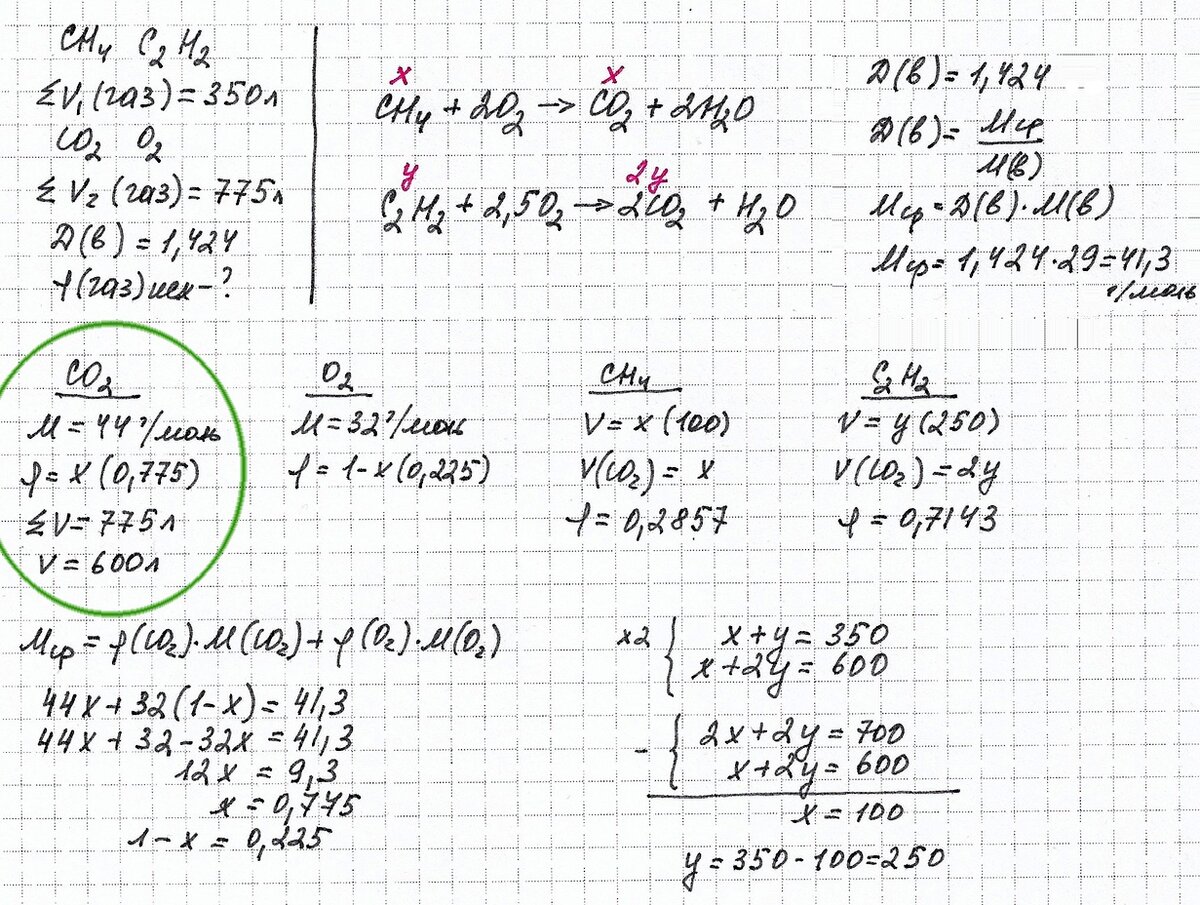 CH₄ C₂H₂
ΣV₁(газ) = 350л
CO₂ O₂
ΣV₂(газ) = 775л
D(в) = 1,424
φ(газ)исх - ?
x x
CH₄ + 2O₂ → CO₂ + 2H₂O
y 2y
C₂H₂ + 2,5O₂ → 2CO₂ + H₂O
D(в) = 1,424
D(в) = Mср / M(в)
Mср = D(в)·M(в)
Mср = 1,424·29 = 41,3
г/моль
CO₂
M = 44 г/моль
φ = x (0,775)
ΣV = 775л
V = 600л
O₂
M = 32 г/моль
φ = 1-x (0,225)
CH₄
V = x (100)
V(CO₂) = x
φ = 0,2857
C₂H₂
V = y (250)
V(CO₂) = 2y
φ = 0,7143
Mср = φ(CO₂)·M(CO₂) + φ(O₂)·M(O₂)
44x + 32(1-x) = 41,3
44x + 32 - 32x = 41,3
12x = 9,3
x = 0,775
1 - x = 0,225
x2 { x + y = 350
x + 2y = 600
- { 2x + 2y = 700
x + 2y = 600
x = 100
y = 350 - 100 = 250